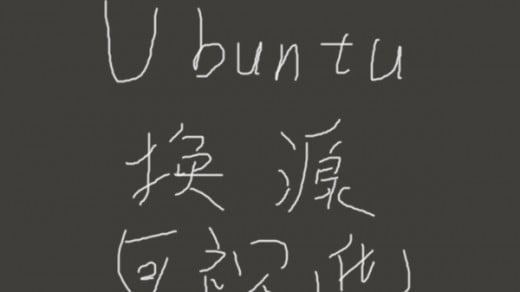 Ubuntu
换源
(可视化)